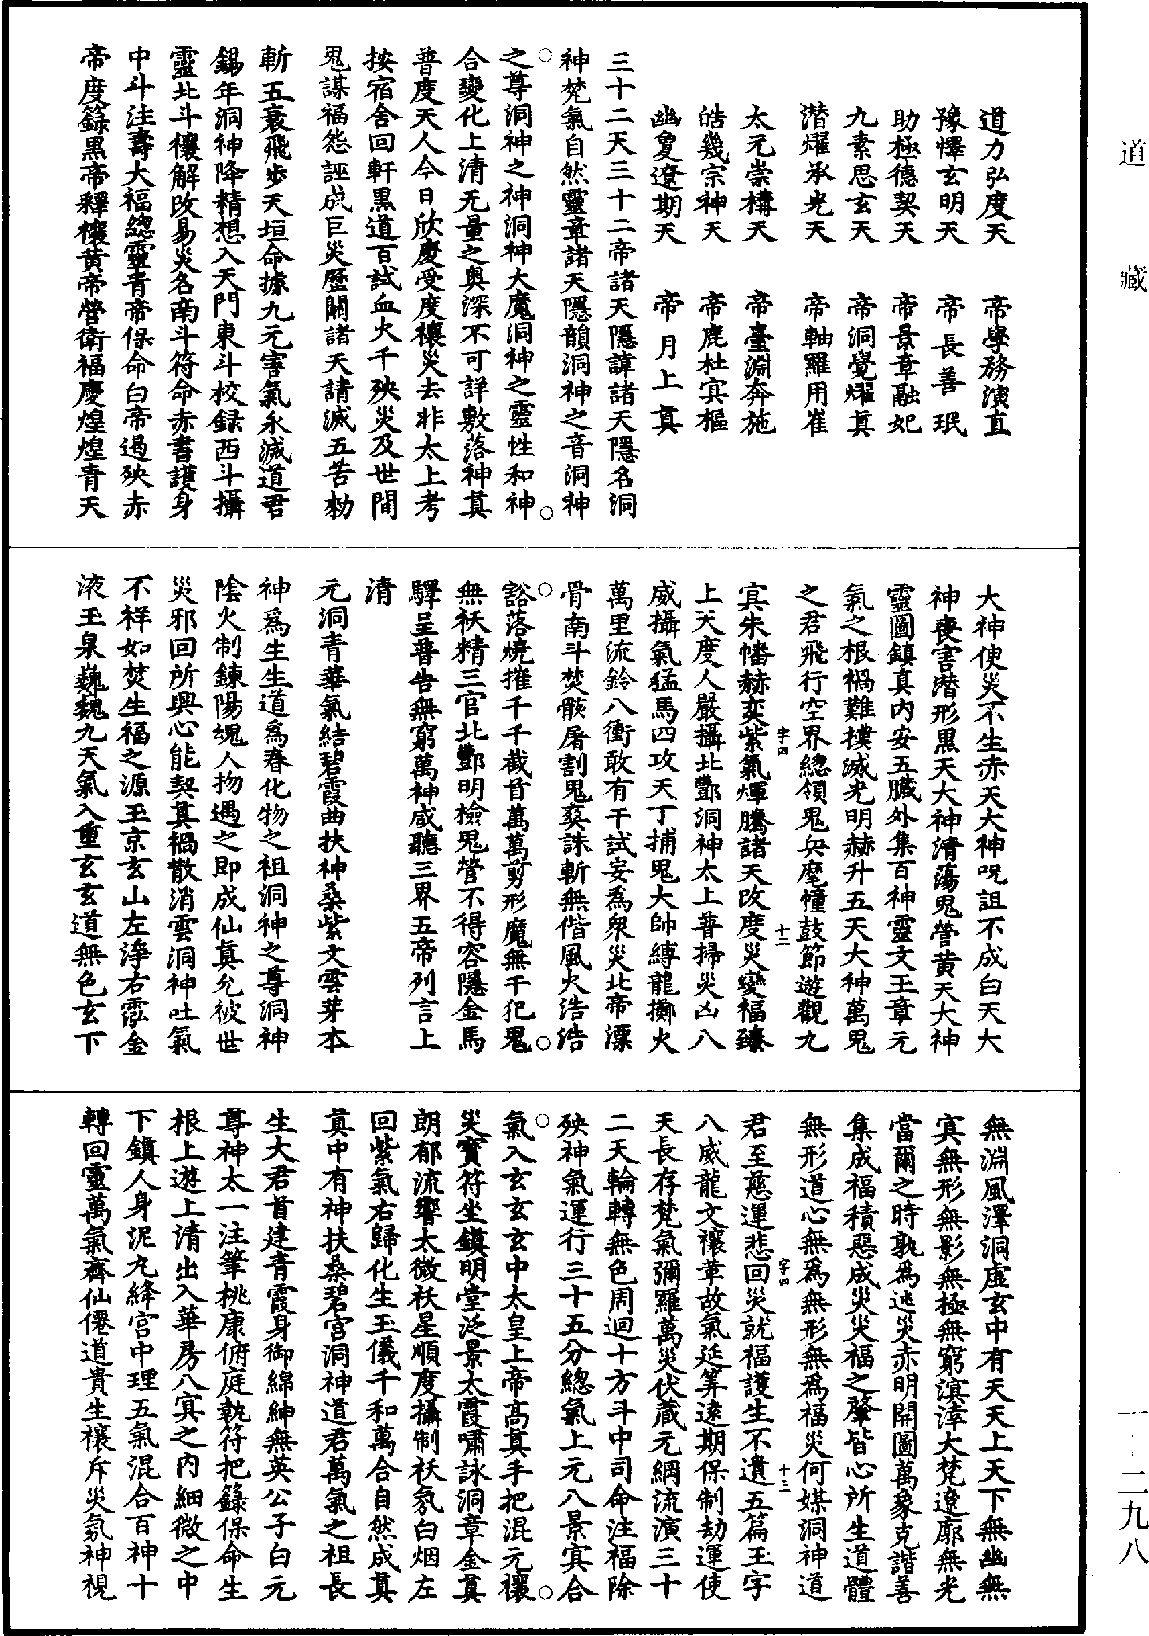 道藏
一·二九八
道力弘度天　帝學務演直
豫懌玄明天　帝長善珉
助極德契天　帝景章融妃
九素思玄天　帝洞覺耀真
潛耀承光天　帝軸羅用崔
太元崇構天　帝臺淵奔施
皓幾宗神天　帝鹿杜宾樞
幽夐遼期天　帝月上真
三十二天三十二帝諸天隱諱諸天隱名洞
神梵氣自然靈章諸天隱韻洞神之音洞神
之尊洞神之神洞神大魔洞神之靈性和神
合變化上清无量之奥深不可詳敷落神真
普度天人今日欣慶受度禳災去非太上考
按宿舍回軒黑道百試血火千殃災及世間
鬼謀福怨誣成巨災歷關諸天請滅五苦勑
斬五衰飛步天垣命據九元害氣永滅道君
錫年洞神降精想入天門東斗校録西斗攝
靈北斗禳解改易災名南斗符命赤書護身
中斗注壽大福總靈青帝保命白帝過殃赤
帝度籙黑帝釋禳黄帝營衛福慶煌煌青天
大神使災不生赤天大神呪詛不成白天大
神喪害潜形黑天大神清蕩鬼營黄天大神
靈圖鎮真内安五臟外集百神靈文玉章元
氣之根禍難撲滅光明赫升五天大神萬鬼
之君飛行空界總領鬼兵麾幢鼓節遊觀九
字四　十二
冥朱旛赫奕紫氣煇騰諸天改度災變福臻
上天度人嚴攝北酆洞神太上普掃災凶八
威攝氣猛馬四攻天丁捕鬼大帥縛龍擲火
萬里流鈴八衝敢有干試妄為衆災北帝漂
骨南斗焚骸屠割鬼爽誅斬無偕風火浩浩
谿落燒摧千千截首萬萬剪形魔無干犯鬼
無袄精三官北酆明檢鬼營不得容隱金馬
驛呈普告無窮萬神咸聽三界五帝列言上
清
元洞青華氣結碧霞曲扶神桑紫文雲芽本
神爲生生道爲春化物之祖洞神之尊洞神
陰火制鍊陽媿人物遇之即成仙真允被世
災邪回所興心能契真禍散消雲洞神吐氣
不祥如焚生福之源玉京玄山左淨右霐金
液玉泉巍巍九天氣入重玄玄道無色玄下
無淵風澤洞虚玄中有天天上天下無幽無
冥無形無影無極無窮溟涬大梵遼廓無光
當爾之時孰爲述災赤明開圖萬象克諧善
集成福積惡成災災福之肇皆心所生道體
無形道心無爲無形無爲福災何媒洞神道
字四　十三
君至慈運悲回災就福護生不遺五篇玉字
八威龍文禳章故氣延筭遠期保制劫運使
天長存梵氣彌羅萬災伏藏元綱流演三十
二天輪轉無色周迴十方斗中司命注福除
殃神氣運行三十五分總氣上元八景冥合
氣入玄玄玄中太皇上帝高真手把混元禳
災寶符坐鎮明堂泛景太霞嘯詠洞章金真
朗郁流響太微袄星順度攝制袄氛白烟左
回紫氣右歸化生玉儀千和萬合自然成真
真中有神扶桑碧宫洞神道君萬氣之祖長
生大君首建青霞身御綿紳無英公子白元
尊神太一注筆桃康俯庭執符把籙保命生
根上遊上清出入華房八冥之内細微之中
下鎮人身泥丸絳宫中理五氣混合百神十
轉回靈萬氣齊仙僊道貴生禳斥災氛神視